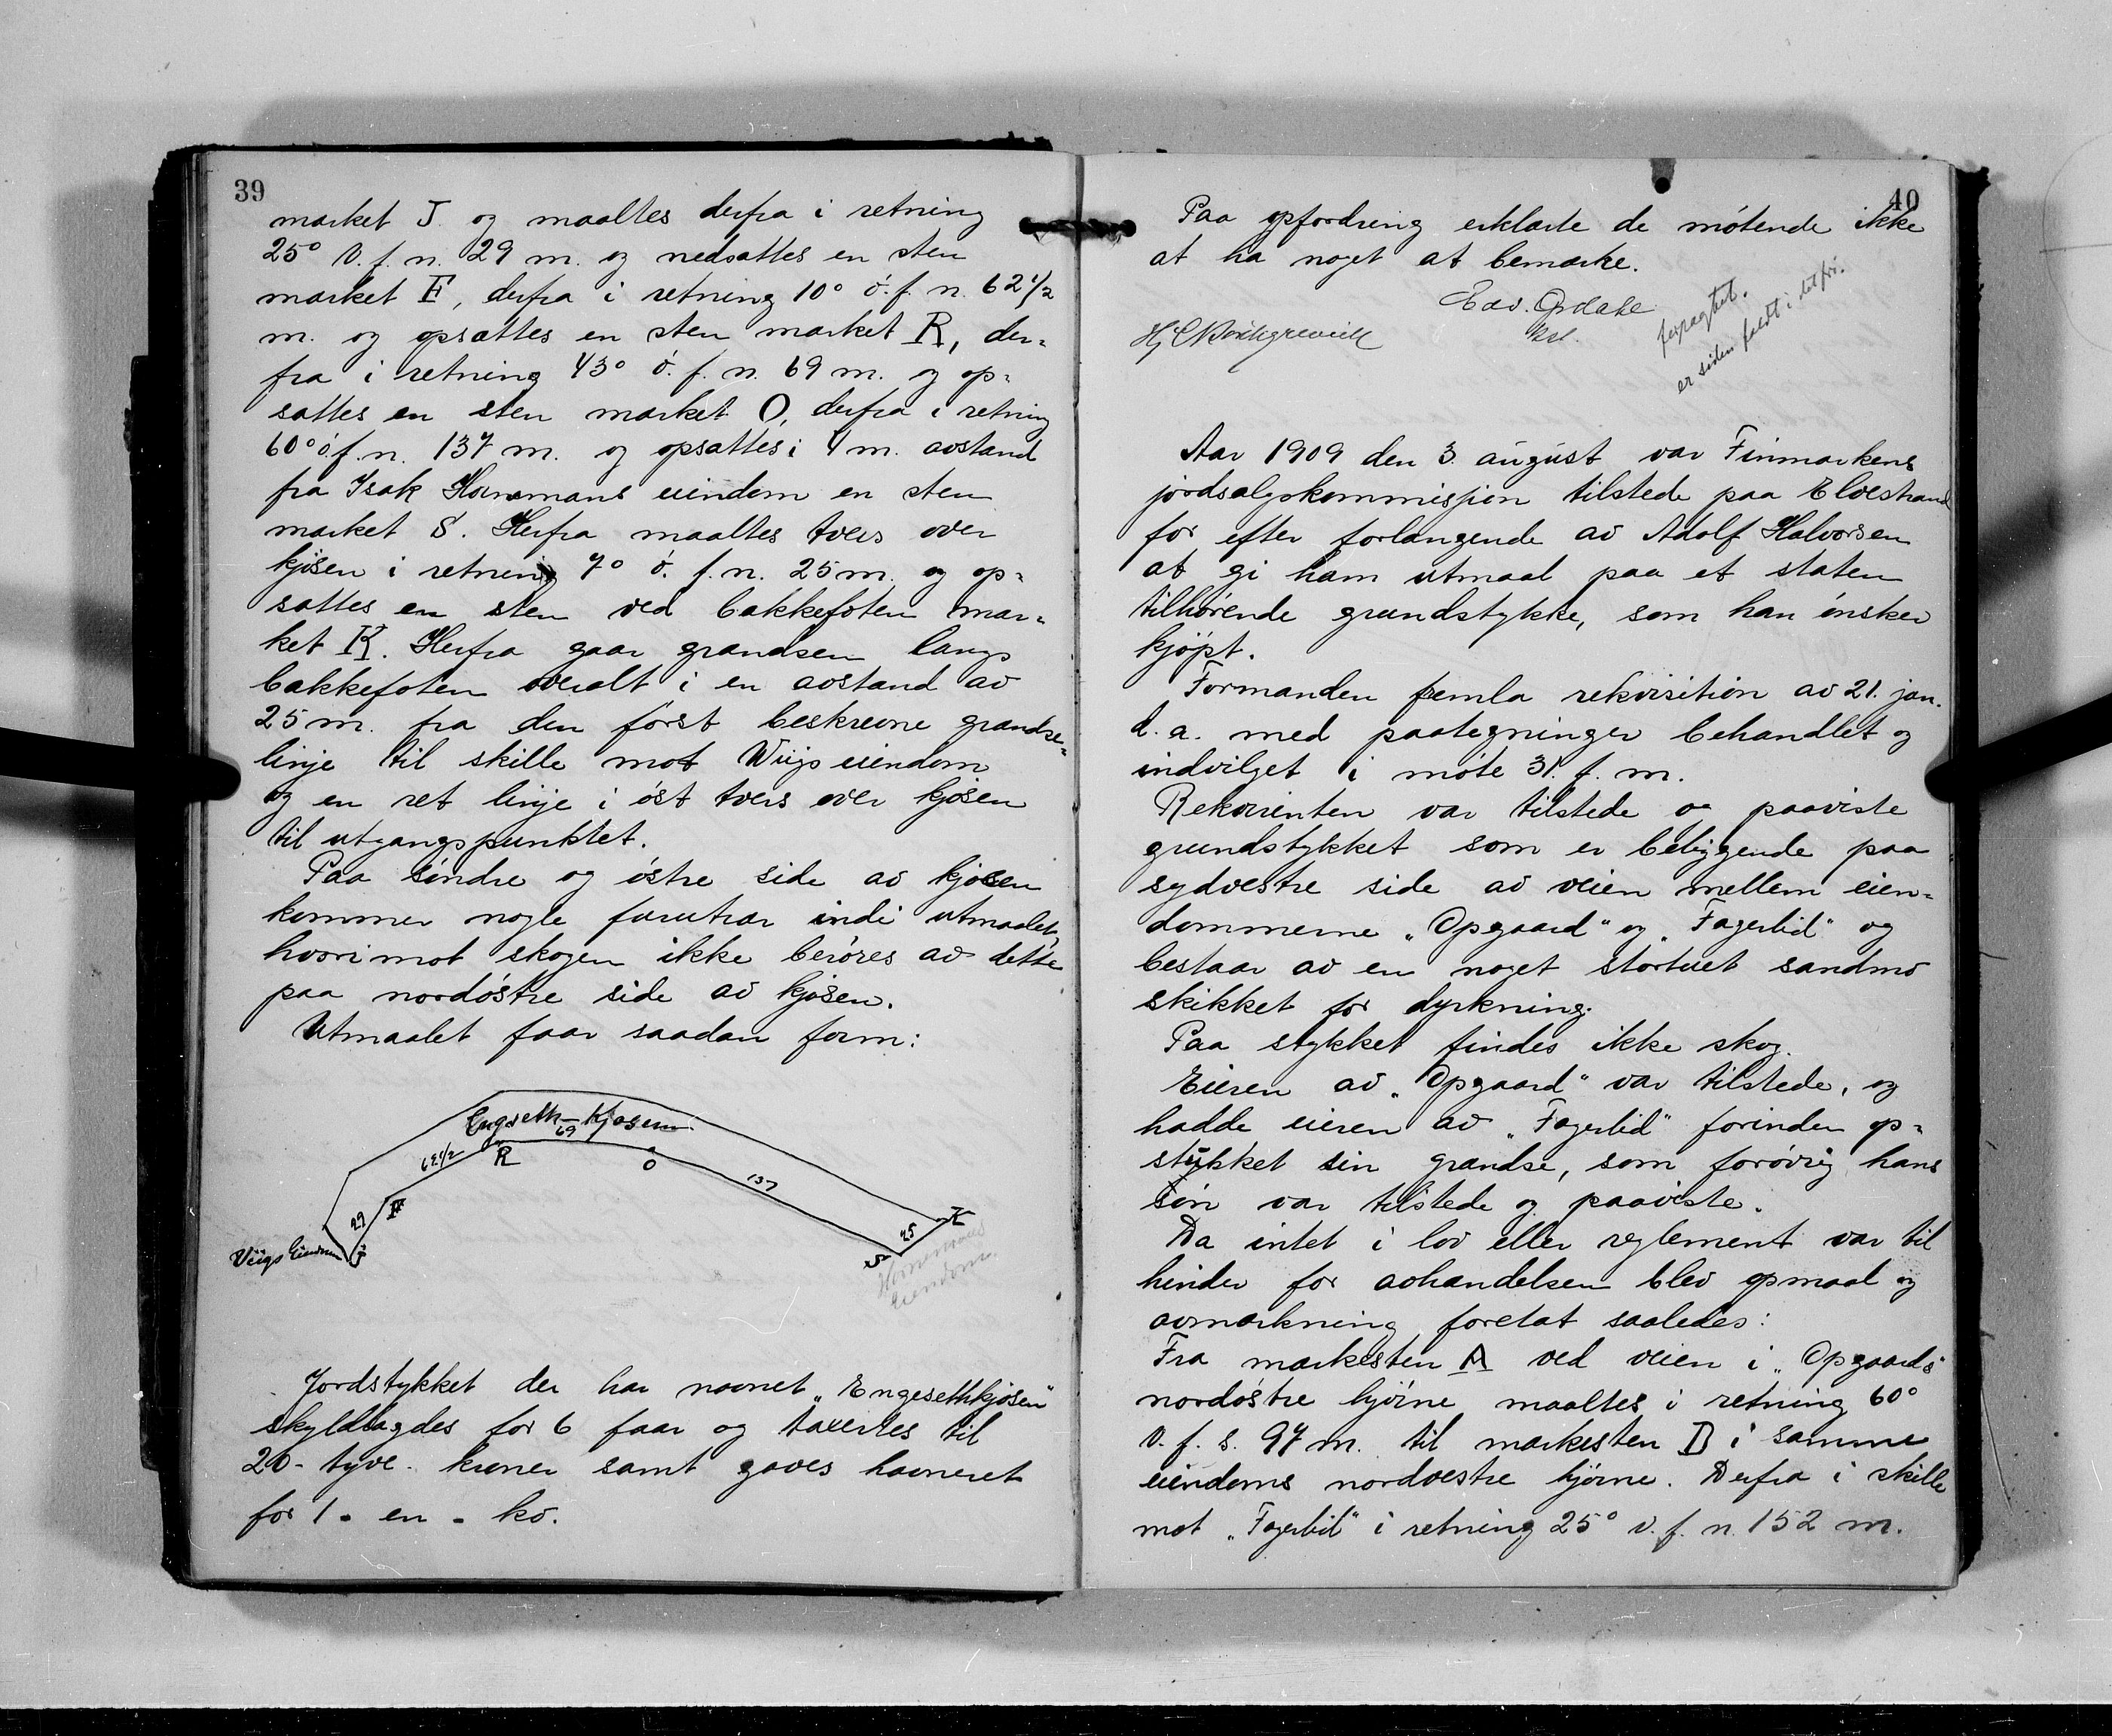 39
merket J. og maaltes derfra i retning
25° v. f. n. 29 m. og nedsattes en sten
merket F, derfra i retning 10° ó. f. n. 62 1/2
m. og opsattes en sten merket R, der-
fra i retning 43° ó. f. n. 69 m. og op-
sattes en sten merket O, derfra i retning
60° ó. f. n. 137 m. og opsattes i 4 m. avstand
fra Isak Hornemans eiendom en sten
merket S. Herfra maaltes tvers over
kjosen i retning 70° ó. f. n. 25 m. og op-
sattes en sten ved bakkefoten mær-
ket K. Herfra gaar grændsen langs
bakkefoten overalt i en avstand av
25 m. fra den først beskrevne grændse-
linje til skille mot Wiigs eiendom
og en ret linje i øst tvers over kjosen
til utgangspunktet.
Paa søndre og østre side av kjosen
kommer nogle furutrær indi utmaalet,
hvorimot skogen ikke berøres av dette
paa nordøstre side av kjosen.
Utmaalet faar saadan form:
Engseth-kjosen
69
62 1/2
R
O
137
29
F
25
K
Viigs Eiendom
J
S
Hornemans
Eiendom
Jordstykket der har navnet „Engesethkjosen"
skyldlagdes for 6 faar og taxertes til
20 - tyve - kroner samt gaves havneret
for 1 - en - ko.
40
Paa opfordring erklærte de møtende ikke
at ha noget at bemerke.
forpagtet.
er siden faldt i det fri.
Aar 1909 den 3. august var Finmarkens
jordsalgskommisjion tilstede paa Elvestrand
for efter forlangende av Adolf Halvorsen
at gi ham utmaal paa et staten
tilhørende grundstykke, som han ønsker
kjøpt.
Formanden fremla rekvisition av 21. jan.
d. a. med paategninger behandlet og
indvilget i møte 31. f. m.
Rekvirenten var tilstede og paaviste
grundstykket som er beliggende paa
sydvestre side av veien mellem eien-
dommerne „Opgaard" og „Fagerlid" og
bestaar av en noget stortuet sandmo
skikket for dyrkning.
Paa stykket findes ikke skog.
Eieren av „Opgaard" var tilstede, og
hadde eieren av „Fagerlid" forinden op-
stykket sin grændse, som forøvrig hans
søn var tilstede og paaviste.
Da intet i lov eller reglement var til
hinder for avhandelsen blev opmaal og
avmerkning foretat saaledes:
Fra merkesten A ved veien i „Opgaards"
nordøstre hjørne maaltes i retning 60°
v. f. s. 97 m. til merkesten D i samme
eiendoms nordvestre hjørne. Derfra i skille
mot „Fagerlid" i retning 25° v. f. n. 152 m.